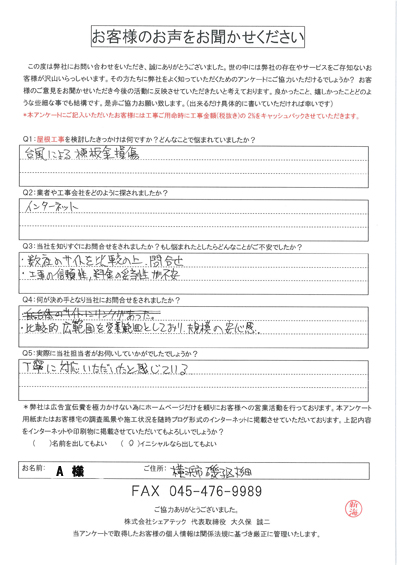 お客様のお声をお聞かせください
この度は弊社にお問い合わせをいただき、誠にありがとうございました。世の中には弊社の存在やサービスをご存知ないお
客様が沢山いらっしゃいます。その方たちに弊社をよく知っていただくためのアンケートにご協力いただけるでしょうか? お客
様のご意見をお聞かせいただき今後の活動に反映させていただきたいと考えております。良かったこと、嬉しかったことどのよ
うな些細な事でも結構です。是非ご協力お願い致します。(出来るだけ具体的に書いていただければ幸いです)
*本アンケートにご記入いただいたお客様には工事ご用命時に工事金額(税抜き)の2%をキャッシュバックさせていただきます。
Q1:屋根工事を検討したきっかけは何ですか?どんなことで悩まれていましたか?
台風による棟板金損傷
Q2:業者や工事会社をどのように探されましたか?
インターネット
Q3:当社を知りすぐにお問合せをされましたか?もし悩まれたとしたらどんなことがご不安でしたか?
・数社のサイトを比較の上、問合せ
・工事の信頼性、料金の妥当性が不安
Q4:何が決め手となり当社にお問合せをされましたか?
のサイトにリンクがあった。
・比較的広範囲を営業範囲としており、規模の安心感。
Q5:実際に当社担当者がお伺いしていかがでしたでしょうか?
丁寧に対応いただいたと感じている
*弊社は広告宣伝費を極力かけない為にホームページだけを頼りにお客様への営業活動を行っております。本アンケート
用紙またはお客様宅の調査風景や施工状況を随時ブログ形式のインターネットに掲載させていただいております。上記内容
をインターネットや印刷物に掲載させていただいてもよろしいでしょうか?
( )名前を出してもよい ( O )イニシャルなら出してもよい
お名前: A 様 ご住所: 横浜市磯子区
FAX 045-476-9989
ご協力ありがとうございました。
株式会社シェアテック 代表取締役 大久保 誠二
当アンケートで取得したお客様の個人情報は関係法規に基づき厳正に管理いたします。